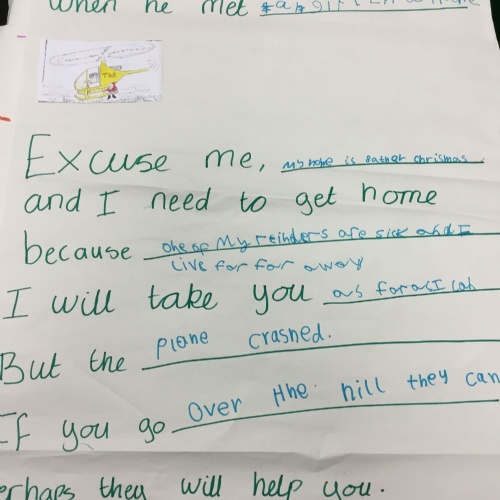 When he met
Excuse me, My nome is Father chrismas
and I need to get home
because one of My reinders are sick and I
Live far far away
I will take you as far as I can
But the plane crashed.
If you go over the hill they can
erhaps they will help you.